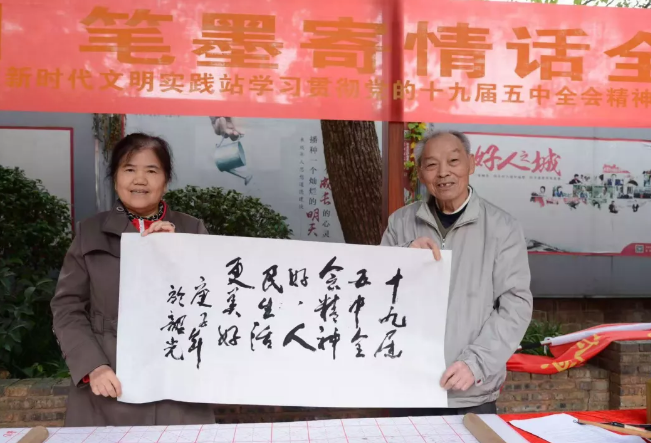 笔墨寄情话全
新时代文明实践站学习贯彻党的十九届五中全会精神
播种一个灿烂的明天
成长的心灵
好人之城
十九届
五中全
会精神
好、人
民生活
更美好
庚子年
於韶光